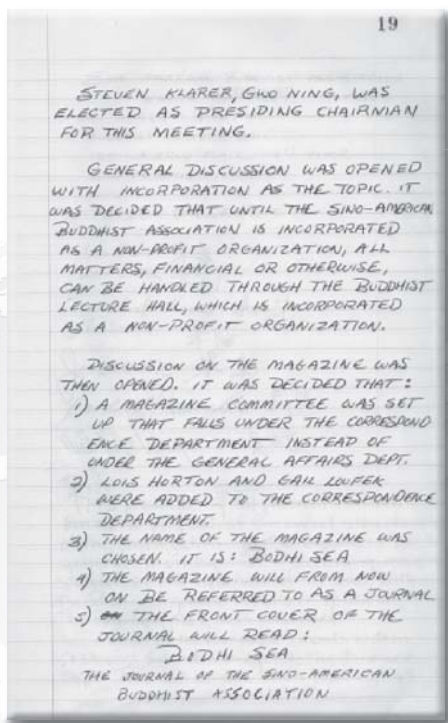 19
STEVEN KLARER, GWO NING, WAS
ELECTED AS PRESIDING CHAIRMAN
FOR THIS MEETING.
GENERAL DISCUSSION WAS OPENED
WITH INCORPORATION AS THE TOPIC. IT
WAS DECIDED THAT UNTIL THE SINO-AMERICAN
BUDDHIST ASSOCIATION IS INCORPORATED
AS A NON-PROFIT ORGANIZATION, ALL
MATTERS, FINANCIAL OR OTHERWISE,
CAN BE HANDLED THROUGH THE BUDDHIST
LECTURE HALL, WHICH IS INCORPORATED
AS A NON-PROFIT ORGANIZATION.
DISCUSSION ON THE MAGAZINE WAS
THEN OPENED. IT WAS DECIDED THAT:
1) A MAGAZINE COMMITTEE WAS SET
UP THAT FALLS UNDER THE CORRESPOND
ENCE DEPARTMENT INSTEAD OF
UNDER THE GENERAL AFFAIRS DEPT.
2) LOIS HORTON AND GAIL LOUFEK
WERE ADDED TO THE CORRESPONDENCE
DEPARTMENT.
3) THE NAME OF THE MAGAZINE WAS
CHOSEN. IT IS: BODHI SEA
4) THE MAGAZINE WILL FROM NOW
ON BE REFERRED TO AS A JOURNAL
5) THE FRONT COVER OF THE
JOURNAL WILL READ:
BODHI SEA
THE JOURNAL OF THE SINO-AMERICAN
BUDDHIST ASSOCIATION